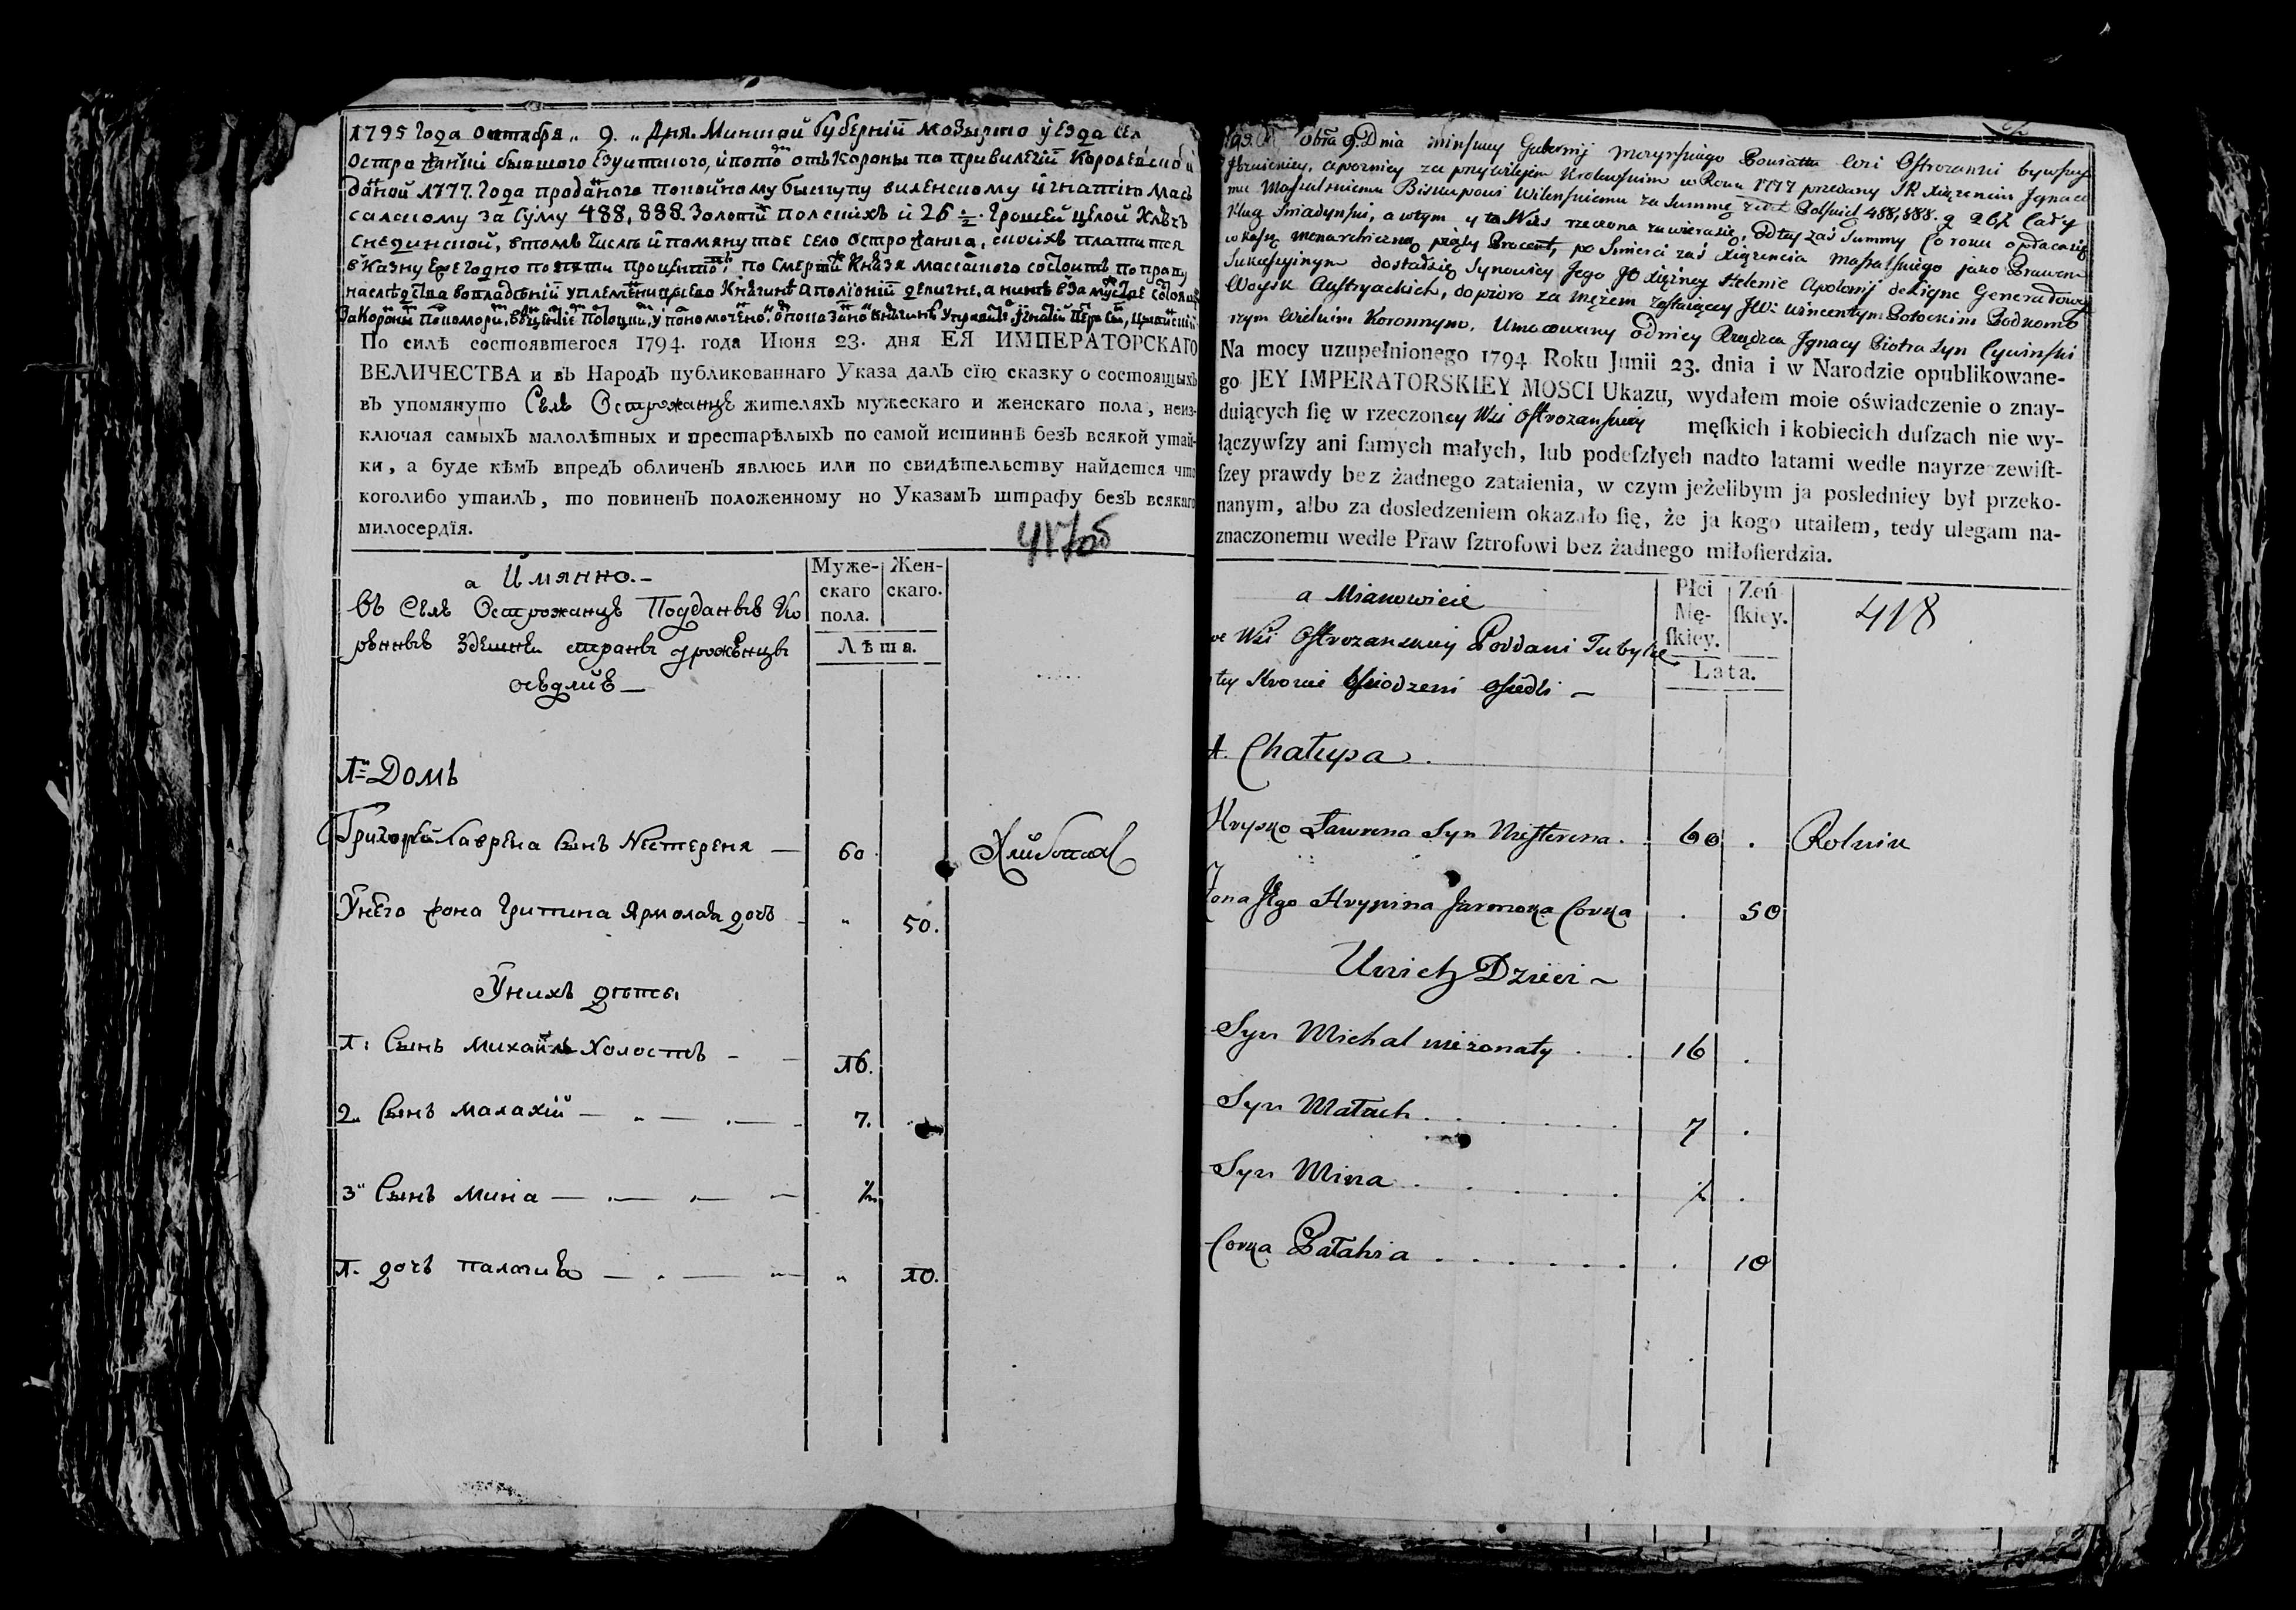 1795 года октября „ 9. „ Дня. Минской Губерній мозырго уезда сел
Остро жанки бывшого Езуитского, и потомъ отъ Короны по привилегій Королевской
данной 1777. Года проданого покойному бискупу виленскому Игнатію Мас
салскому за суму 488,888. Золотй полскихъ и 26 ½. Грошей целой Ключъ
Снединской, втомъ числѣ и помянутое село Остро жанка, скоихъ платится
в Казну Ежегодно по пяти процентовъ, по смерти Князя массалского состоитъ по праву
наследства во владѣній у племеницы его Княгинѣ Аполіоній делигне, а нинѣ в замуж
За Коронй Поткомори
По силѣ состоявшегося 1794. года Июня 23. дня ЕЯ ИМПЕРАТОРСКАГО
ВЕЛИЧЕСТВА и въ Народъ публикованнаго Указа далъ сїю сказку о состоящыхъ
въ упомянуто Селѣ Острожанцѣ жителяхъ мужескаго и женскаго пола, неиз-
ключая самыхъ малолѣтныхъ и престарѣлыхъ по самой истиннѣ безъ всякой утай-
ки, а буде кѣмъ впредъ обличенъ явлюсь или по свидѣтельству найдется что
коголибо утаилъ, то повиненъ положенному по Указамъ штрафу безъ всякаго
милосердїя.
а Имянно.-
Въ Селѣ Острожанцѣ Подданые Ко
рѣнныѣ Здешнѣй странѣ урожѣнцы
осѣдлиѣ —
Муже-
скаго
пола.
Жен-
скаго.
Лѣта.
1. Домъ
Григорей Лаврѣна Сынъ Нестереня — 60
Унего жона Гритина Ярмолаза дочъ - „ 50.
Унихъ дѣти
1: Сынъ Михайлъ Холостъ - - 16.
2. Сынъ Малахій — „ — . — - 7.
3" Сынъ Миніа — . — . — -
1. дочъ палагиѣ — . — - „ 10.
obra 9. Dnia minskiey Gubernij Mozyrskiego Powiatu Wsi Ostrozanki bywszey
Jezuickiey, a pozniey za przywilejem Krolewskim w Roku 1777 przedany JK Xiązenciu Jgnace
mu Massalskiemu Biskupowi Wilenskiemu za Summę Zlot Polskich 488,888. g 26½ Cały
Klucz Sniadynski, a wtym y ta Wies rzeczona zawierasię, od tey zaś Summy Co roku opłacasię
w kasę Monarchiczną piąty Procent, po Smierci zaś Xiązencia Massalskiego jako Prawem
Sukcessyinym dostałasię Synowicy Jego JO Xiężney Helenie Apolonij deLigne Generałowey
Woysk Austryackich, dopioro za Mężem zostaiącey JW: Wincentym Potockim Podkomo
rzym Wielkim Koronnym. Umocowany odniey Rządzca Jgnacy Piotra Syn Cywinski
Na mocy uzupełnionego 1794 Roku Junii 23. dnia i w Narodzie opublikowane-
go JEY IMPERATORSKIEY MOSCI Ukazu, wydałem moie oświadczenie o znay-
duiących ſię w rzeczoney Wsi Ostrozanskiey męſkich i kobiecich duſzach nie wy-
łączywſzy ani ſamych małych, lub podeſzłych nadto latami wedle nayrze zewiſt-
ſzey prawdy bez żadnego zataienia, w czym jeżelibym ja posledniey był przeko-
nanym, albo za dosledzeniem okazało ſię, że ja kogo utaiłem, tedy ulegam na-
znaczonemu wedle Praw ſztrofowi bez żadnego miłoſierdzia.
a Mianowicie
we Wsi Ostrozanskiey Poddani Tubylce
tey Stronie Urodzeni Osiedli —
Płci
Mę-
ſkiey.
Zeń-
ſkiey.
Lata.
418
1. Chałupa .
Hryszko Ławrena Syn Nesterena . 60 . Rolnik
Zona Jego Hrypina Jarmoła Corka . 50
Unich Dzieci ~
Syn Michal nieżonaty . . 16 .
Syn Małach . . . . . 7 .
Syn Mina . . . . .
Corka Pałahia . . . . . . . 10